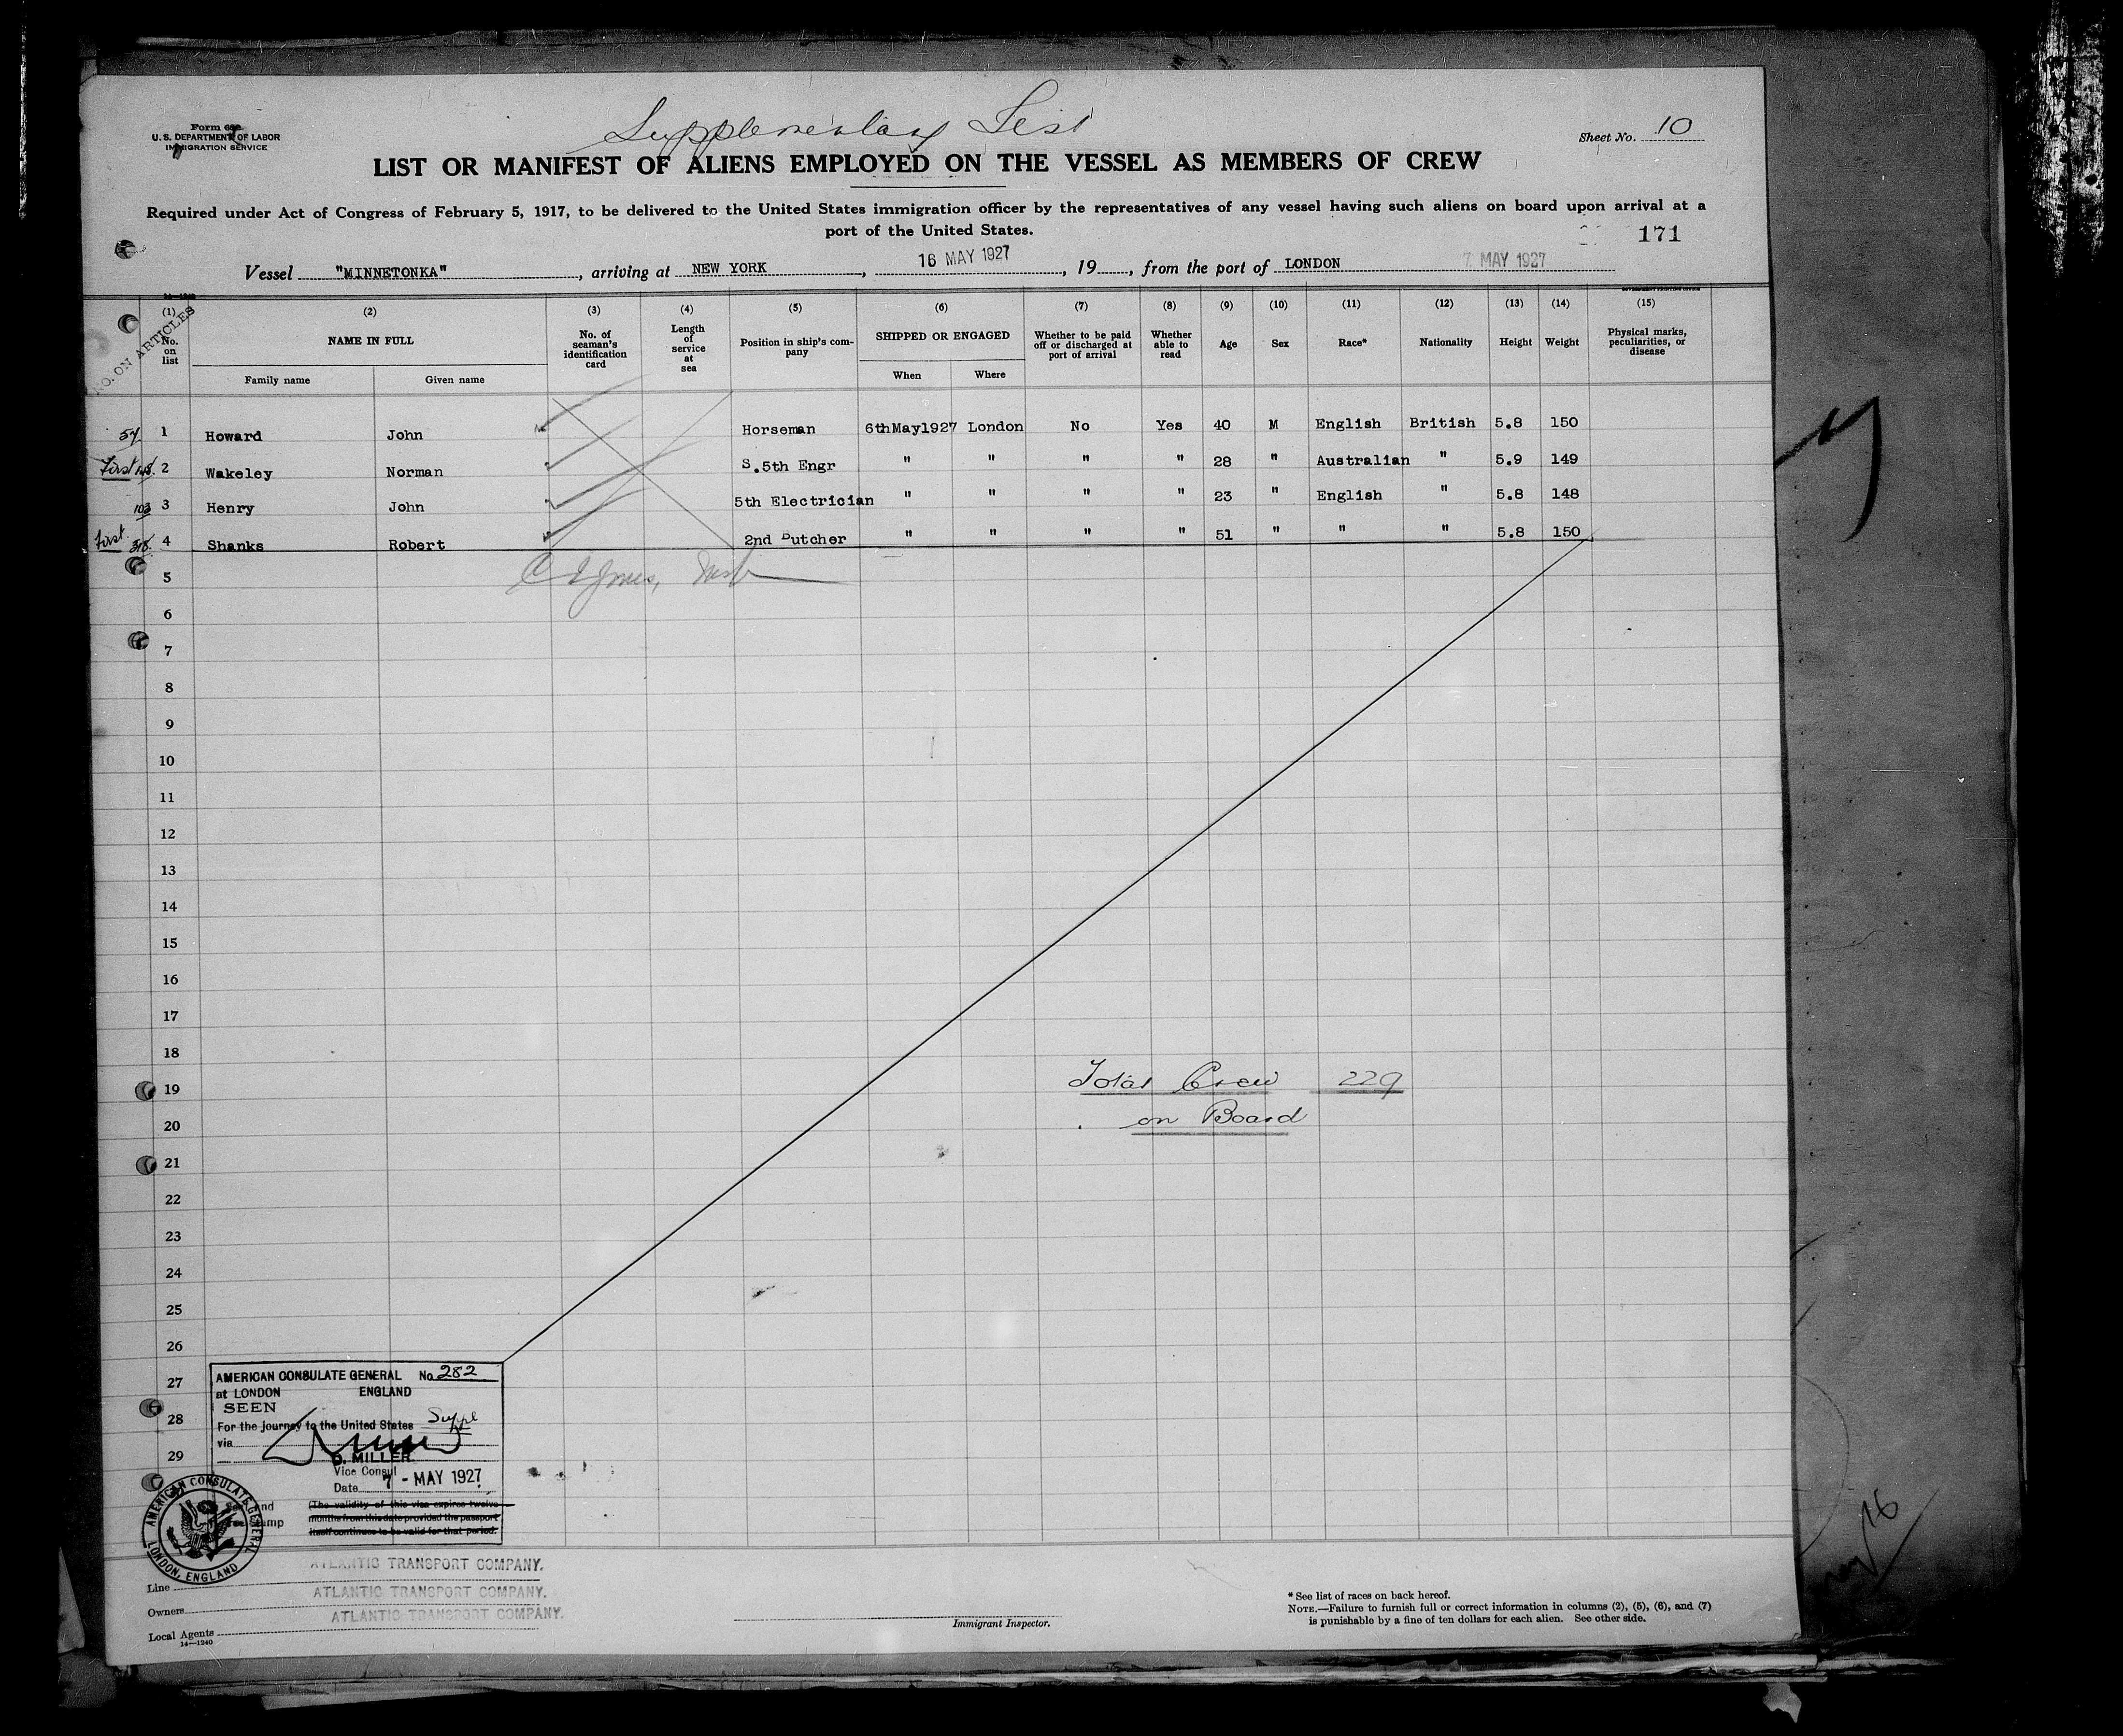 Supplementary List
Form 680
U. S. DEPARTMENT OF LABOR
IMMIGRATION SERVICE
Sheet No. 10
LIST OR MANIFEST OF ALIENS EMPLOYED ON THE VESSEL AS MEMBERS OF CREW
Required under Act of Congress of February 5, 1917, to be delivered to the United States immigration officer by the representatives of any vessel having such aliens on board upon arrival at a
port of the United States.
171
Vessel "MINNETONKA", arriving at NEW YORK, 16 MAY 1927, 19, from the port of LONDON 7 MAY 1927
NO. ON ARTICLES
(1) No. on list
(2) NAME IN FULL Family name Given name
(3) No. of seaman's identification card
(4) Length of service at sea
(5) Position in ship's company
(6) SHIPPED OR ENGAGED When Where
(7) Whether to be paid off or discharged at port of arrival
(8) Whether able to read
(9) Age
(10) Sex
(11) Race*
(12) Nationality
(13) Height
(14) Weight
(15) Physical marks, peculiarities, or disease
54 1 Howard John Horseman 6thMay1927 London No Yes 40 M English British 5.8 150
First 2 Wakeley Norman S.5th Engr " " " " 28 " Australian " 5.9 149
103 3 Henry John 5th Electrician " " " " 23 " English " 5.8 148
First 318. 4 Shanks Robert 2nd Butcher " " " " 51 " " " 5.8 150
5
6
7
8
9
10
11
12
13
14
15
16
17
18
19 Total Crew 229
20 on Board
21
22
23
24
25
26
27
28
29
AMERICAN CONSULATE GENERAL No 282
at LONDON ENGLAND
SEEN
For the journey to the United States Suppl
via
D. MILLER
Vice Consul
Date 7 - MAY 1927
(The validity of this visa expires twelve
months from this date provided the passport
itself continues to be valid for that period.
AMERICAN CONSULATE GENERAL
LONDON, ENGLAND
Line ATLANTIC TRANSPORT COMPANY.
Owners ATLANTIC TRANSPORT COMPANY.
Local Agents ATLANTIC TRANSPORT COMPANY.
14—1240
Immigrant Inspector.
* See list of races on back hereof.
NOTE.—Failure to furnish full or correct information in columns (2), (5), (6), and (7)
is punishable by a fine of ten dollars for each alien. See other side.
16